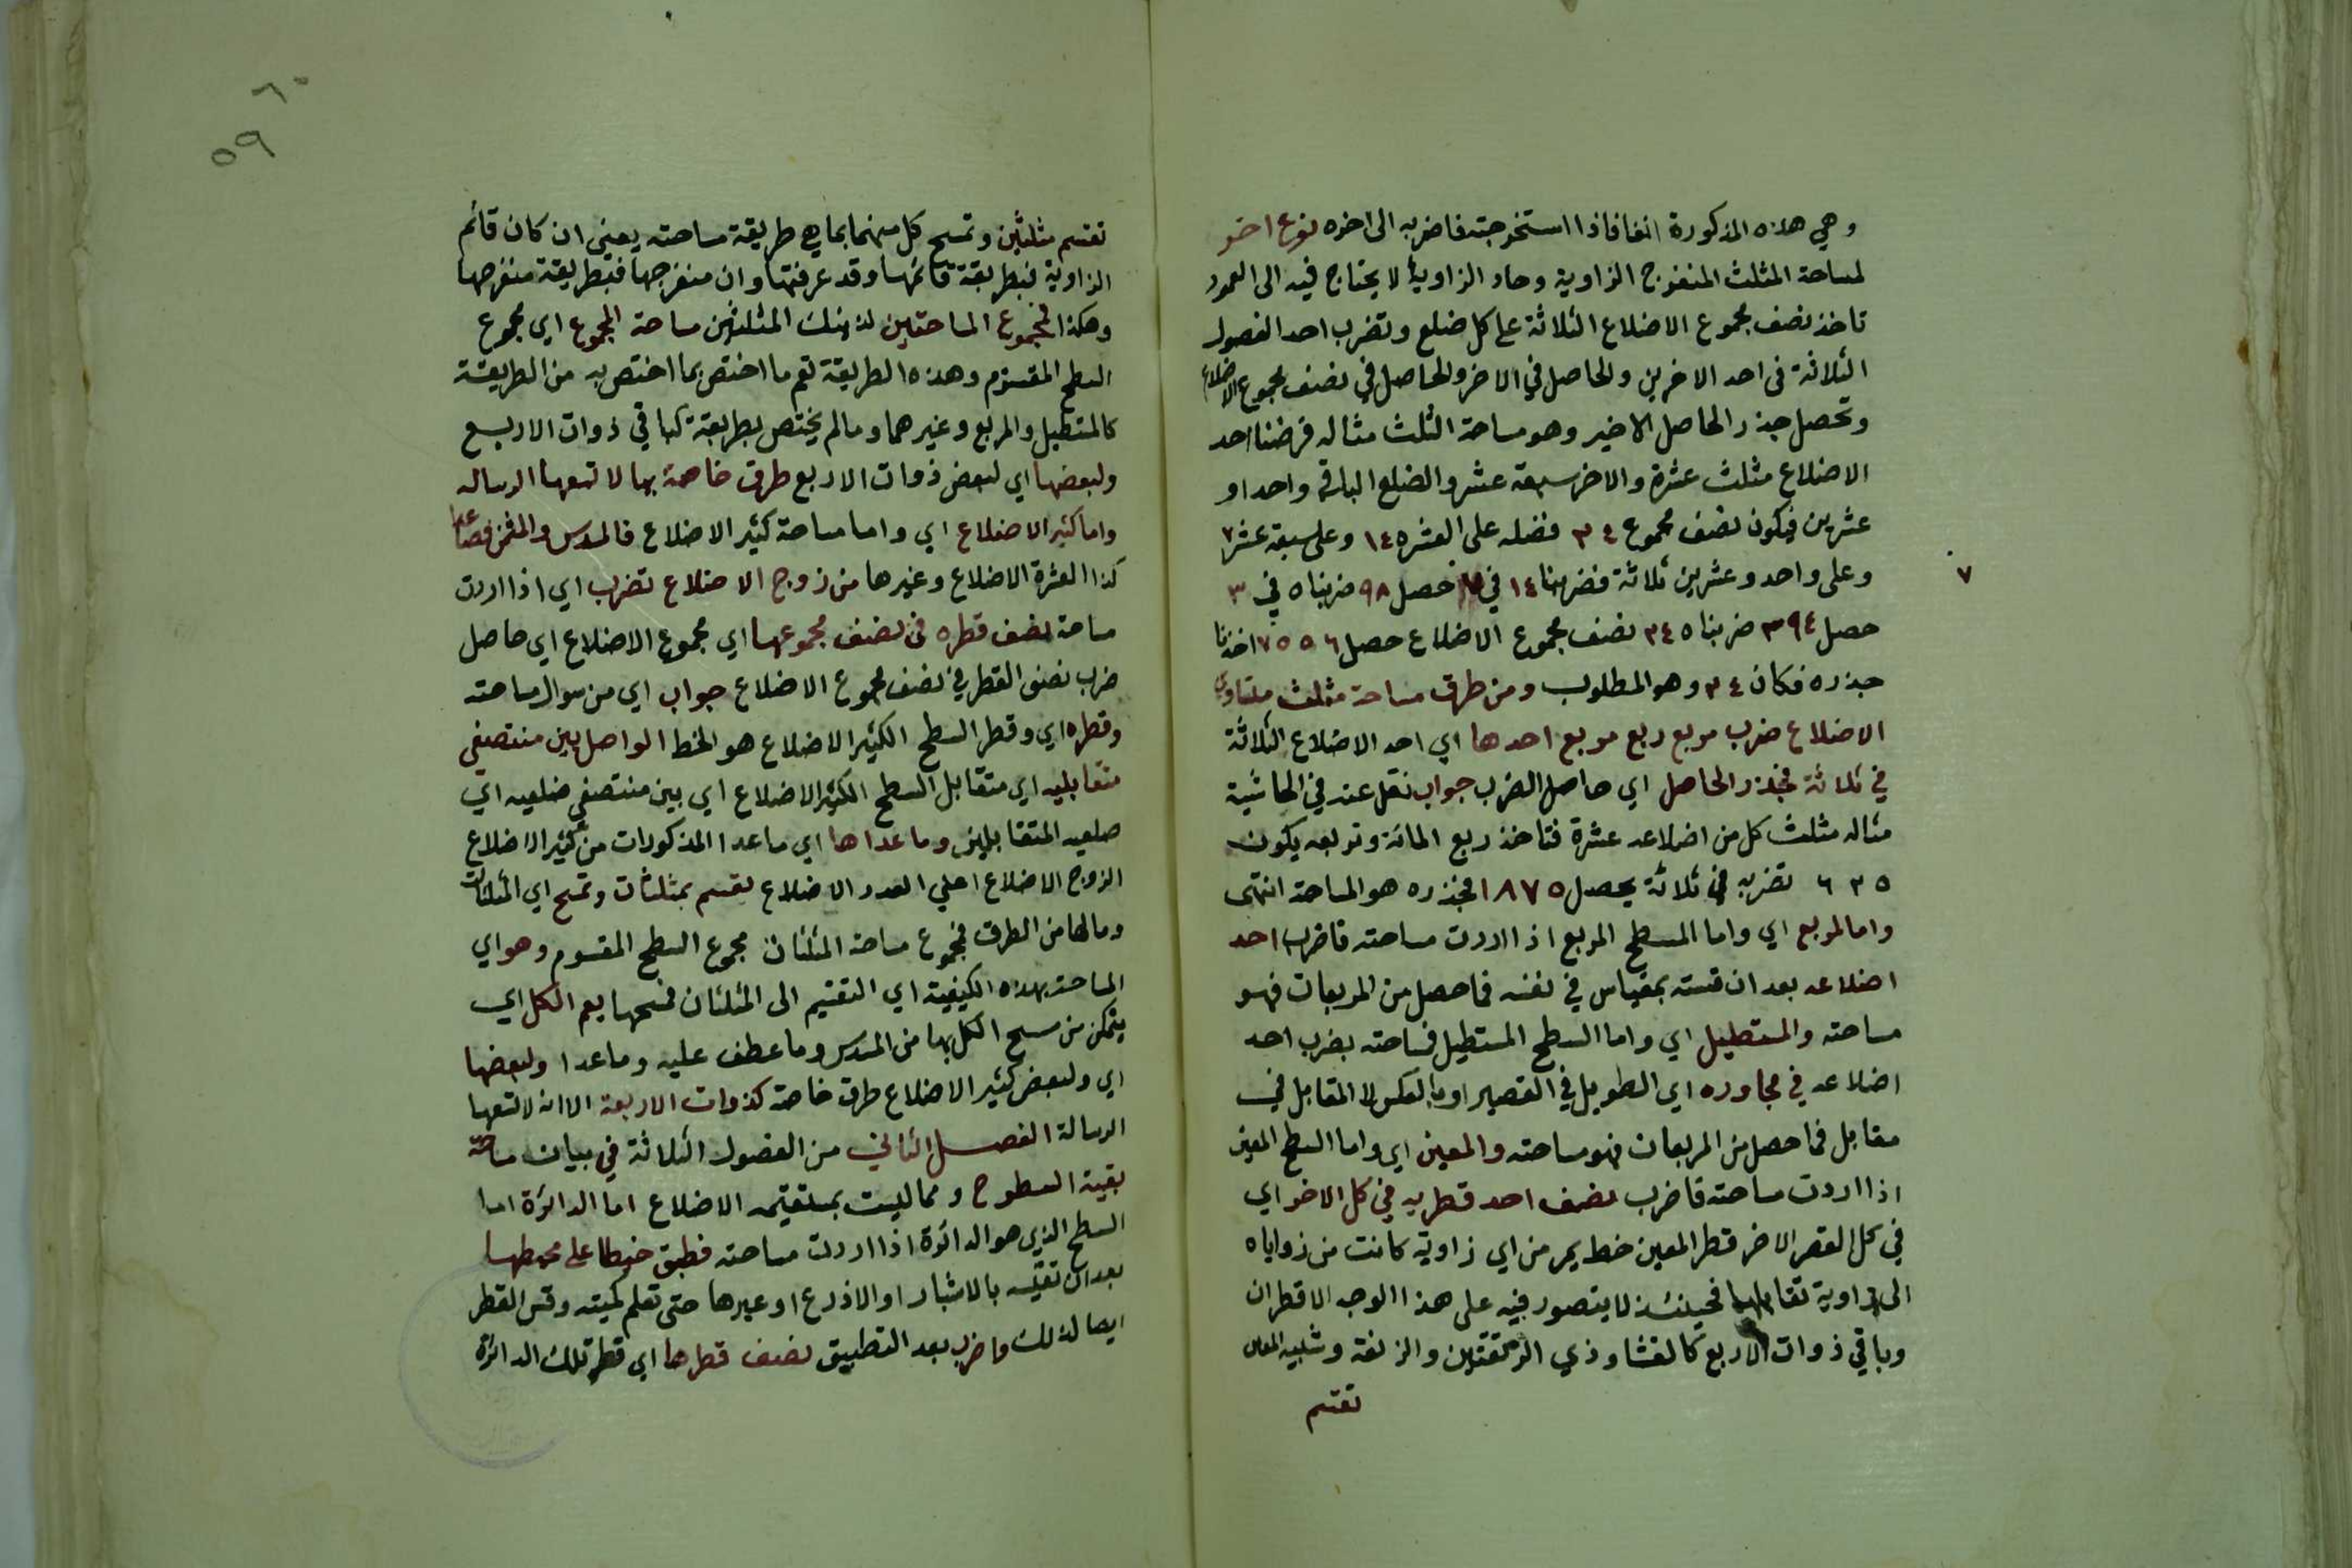 وهي هذه المذكورة انفا فاذا استخرجته فاضربه الى اخره نوع اخر
لمساحة المثلث المنفرج الزاوية وحاد الزاوية لا يحتاج فيه الى العمود
تاخذ نصف مجموع الاضلاع الثلاثة على كل ضلع وتضرب احد الفصول
الثلاثة فى احد الاخرين والحاصل في الاخر والحاصل في نصف مجموع الاضلاع
وتحصل جذر الحاصل الاخير وهو مساحة الثلث مثاله فرضنا احد
الاضلاع مثلث عشرة والاخر سبعة عشر والضلع الباقي واحد او
عشرين فيكون نصف مجموع ٢٤ فضله على العشره ١٤ وعلى سبعة عشر ٧
وعلى واحد وعشرين ثلاثة فضربنا ١٤ في ٧ حصل ٩٨ ضربناه في ٣
٧
حصل ٢٩٤ ضربناه ٢٤ نصف مجموع الاضلاع حصل ٧٥٥٦ اخذنا
جذره فكان ٢٤ وهو المطلوب ومن طرق مساحة مثلث متساوي
الاضلاع ضرب مربع ربع مربع احدها اي احد الاضلاع الثلاثة
في ثلاثة فجذر الحاصل اي حاصل الضرب جواب نقل عنه في الحاشية
مثاله مثلث كل من اضلاعه عشرة فتاخذ ربع المائة وتربعه يكون
٦٢٥ تضربه في ثلاثة يحصل ١٨٧٥ فجذره هو المساحة انتهى
واما المربع اي واما المسطح المربع اذا اردت مساحته فاضرب احد
اضلاعه بعد ان قسته بمقياس في نفسه فما حصل من المربعات فهو
مساحته والمستطيل اي واما السطح المستطيل فمساحته بضرب احد
اضلاعه في مجاوره اي الطويل في القصير او بالعكس لا المقابل في
مقابل فما حصل من المربعات فهو مساحته والمعين اي واما السطح المعين
اذا اردت مساحته فاضرب نصف احد قطريه في كل الاخر اي
في كل القطر الاخر قطر المعين خط يمر من اي زاوية كانت من زواياه
الى زاوية تقابلها فحينئذ لا يتصور فيه على هذا الوجه الا قطران
وباقي ذوات الاربع كالقثا وذي الزنقتين والزنقة وشبيه المعين
تقسم
٦٠
٥٩
تقسم مثلثين وتمسح كل منهما بما هي طريقة مساحته يعني ان كان قائم
الزاوية فبطريقة قائمها وقد عرفتها وان منفرجها فبطريقة منفرجها
وهكذا فمجموع المساحتين لذينك المثلثين مساحة المجموع اي مجموع
السطح المقسوم وهذه الطريقة تعم ما اختص بما اختص به من الطريقة
كالمستطيل والمربع وغيرهما وما لم يختص بطريقة كباقي ذوات الاربع
ولبعضها اي لبعض ذوات الاربع طرق خاصة بها لا تسعها الرساله
واما كثير الاضلاع اي واما مساحة كثير الاضلاع فالمسدس والمثمن فصاعدا
كذا العشرة الاضلاع وغيرها من زوج الاضلاع تضرب اي اذا اردت
مساحة نصف قطره فى نصف مجموعها اي مجموع الاضلاع اي حاصل
ضرب نصف القطر في نصف مجموع الاضلاع جواب اي من سوال مساحته
وقطره اي وقطر السطح الكثير الاضلاع هو الخط الواصل بين منتصفي
متقابليه اي متقابل السطح الكثير الاضلاع اي بين منتصفي ضلعيه اي
ضلعيه المتقابلين وما عداها اي ما عدا المذكورات من كثير الاضلاع
الزوج الاضلاع اعلي العدد الاضلاع تقسم بمثلثات وتمسح اي المثلثات
وما لها من الطرق فمجموع مساحة المثلثات مجموع السطح المقسوم وهو اي
المساحة بهذه الكيفية اي التقسيم الى المثلثان فمسحها يعم الكل اي
يتمكن من مسح الكل بها من المسدس وما عطف عليه وما عدا ولبعضها
اي ولبعض كثير الاضلاع طرق خاصة كذوات الاربعة الا انه لا تسعها
الرسالة الفصل الثاني من الفصول الثلاثة في بيان مساحة
بقية السطوح ومما ليست بمستقيمه الاضلاع اما الدائرة اما
السطح الذي هو الدائرة اذا اردت مساحته فطبق خيطا على محيطها
بعد ان تقيسه بالاشبار او الاذرع او غيرها حتى تعلم كميته وقس القطر
ايضا لذلك واضرب بعد التطبيق نصف قطرها اي قطر تلك الدائرة